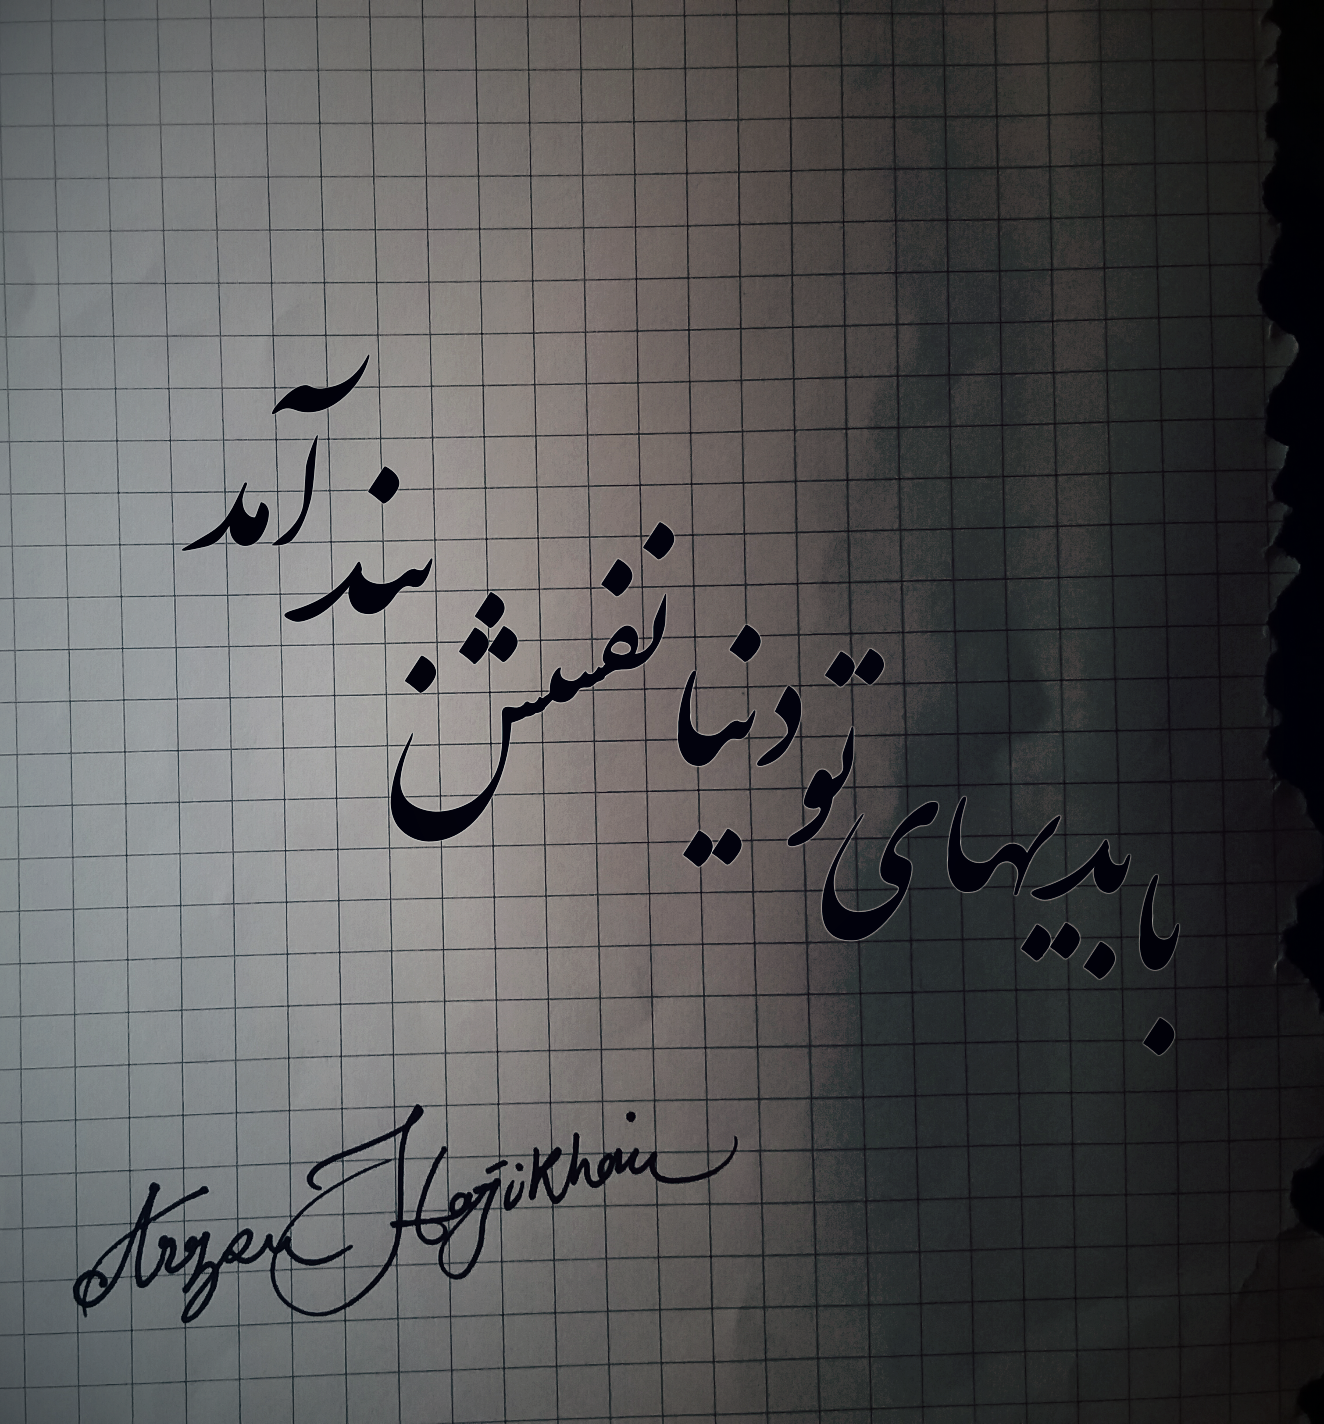 با بدیهای تو دنیا نفسش بند آمد
Arzan Hajikhani